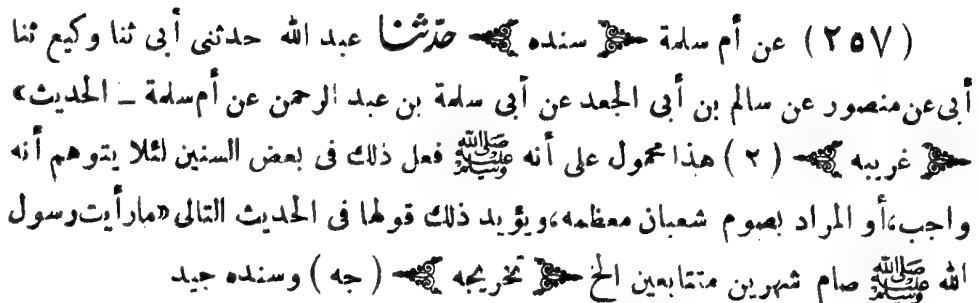 (٢٥٧) عن أم سلمة ﴿ سنده ﴾ حدّثنا عبد الله حدثنى أبى ثنا وكيع ثنا
أبى عن منصور عن سالم بن أبى الجعد عن أبى سلمة بن عبد الرحمن عن أم سلمة ـ الحديث»
﴿ غريبه ﴾ (٢) هذا محمول على أنه ﷺ فعل ذلك فى بعض السنين لئلا يتوهم أنه
واجب، أو المراد بصوم شعبان معظمه، ويؤيد ذلك قولها فى الحديث التالى «ما رأيت رسول
الله ﷺ صام شهرين متتابعين الخ ﴿ تخريجه ﴾ (جه) وسنده جيد